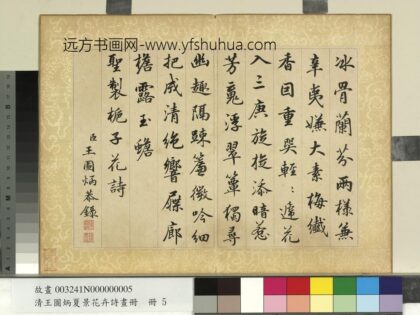 远方书画网-www.yfshuhua.com
冰骨蘭芬兩樣兼
辛夷嫌大素梅纖
香因重臭輕輕逗花
入三庚旋旋添暗惹
芳毫浮翠簟獨尋
幽趣隔踈簾微吟細
把成清絶響屧廊
簷露玉蟾
聖製梔子花詩
臣王圖炳恭錄
故畫 003241N000000005
清王圖炳夏景花卉詩畫冊 冊 5